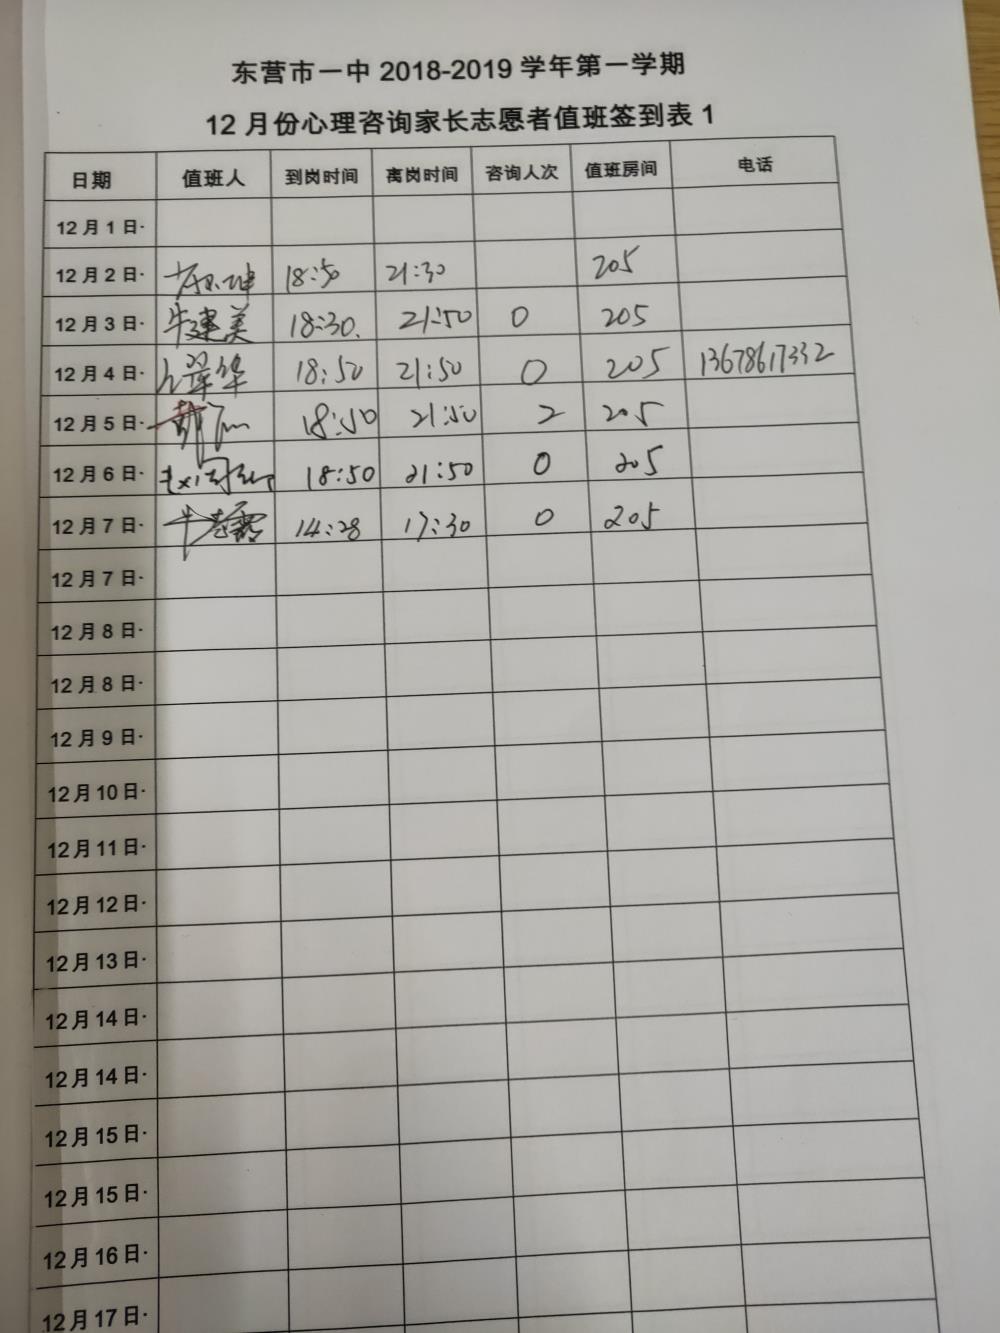 东营市一中 2018-2019 学年第一学期
12 月份心理咨询家长志愿者值班签到表 1
日期 值班人 到岗时间 离岗时间 咨询人次 值班房间 电话
12 月 1 日·
12 月 2 日· 18:50 21:30 205
12 月 3 日· 牛建美 18:30. 21:50 0 205
12 月 4 日· 18:50 21:50 0 205 13678617332
12 月 5 日· 18:50 21:50 2 205
12 月 6 日· 18:50 21:50 0 205
12 月 7 日· 14:28 17:30 0 205
12 月 7 日·
12 月 8 日·
12 月 8 日·
12 月 9 日·
12 月 10 日·
12 月 11 日·
12 月 12 日·
12 月 13 日·
12 月 14 日·
12 月 14 日·
12 月 15 日·
12 月 15 日·
12 月 16 日·
12 月 17 日·